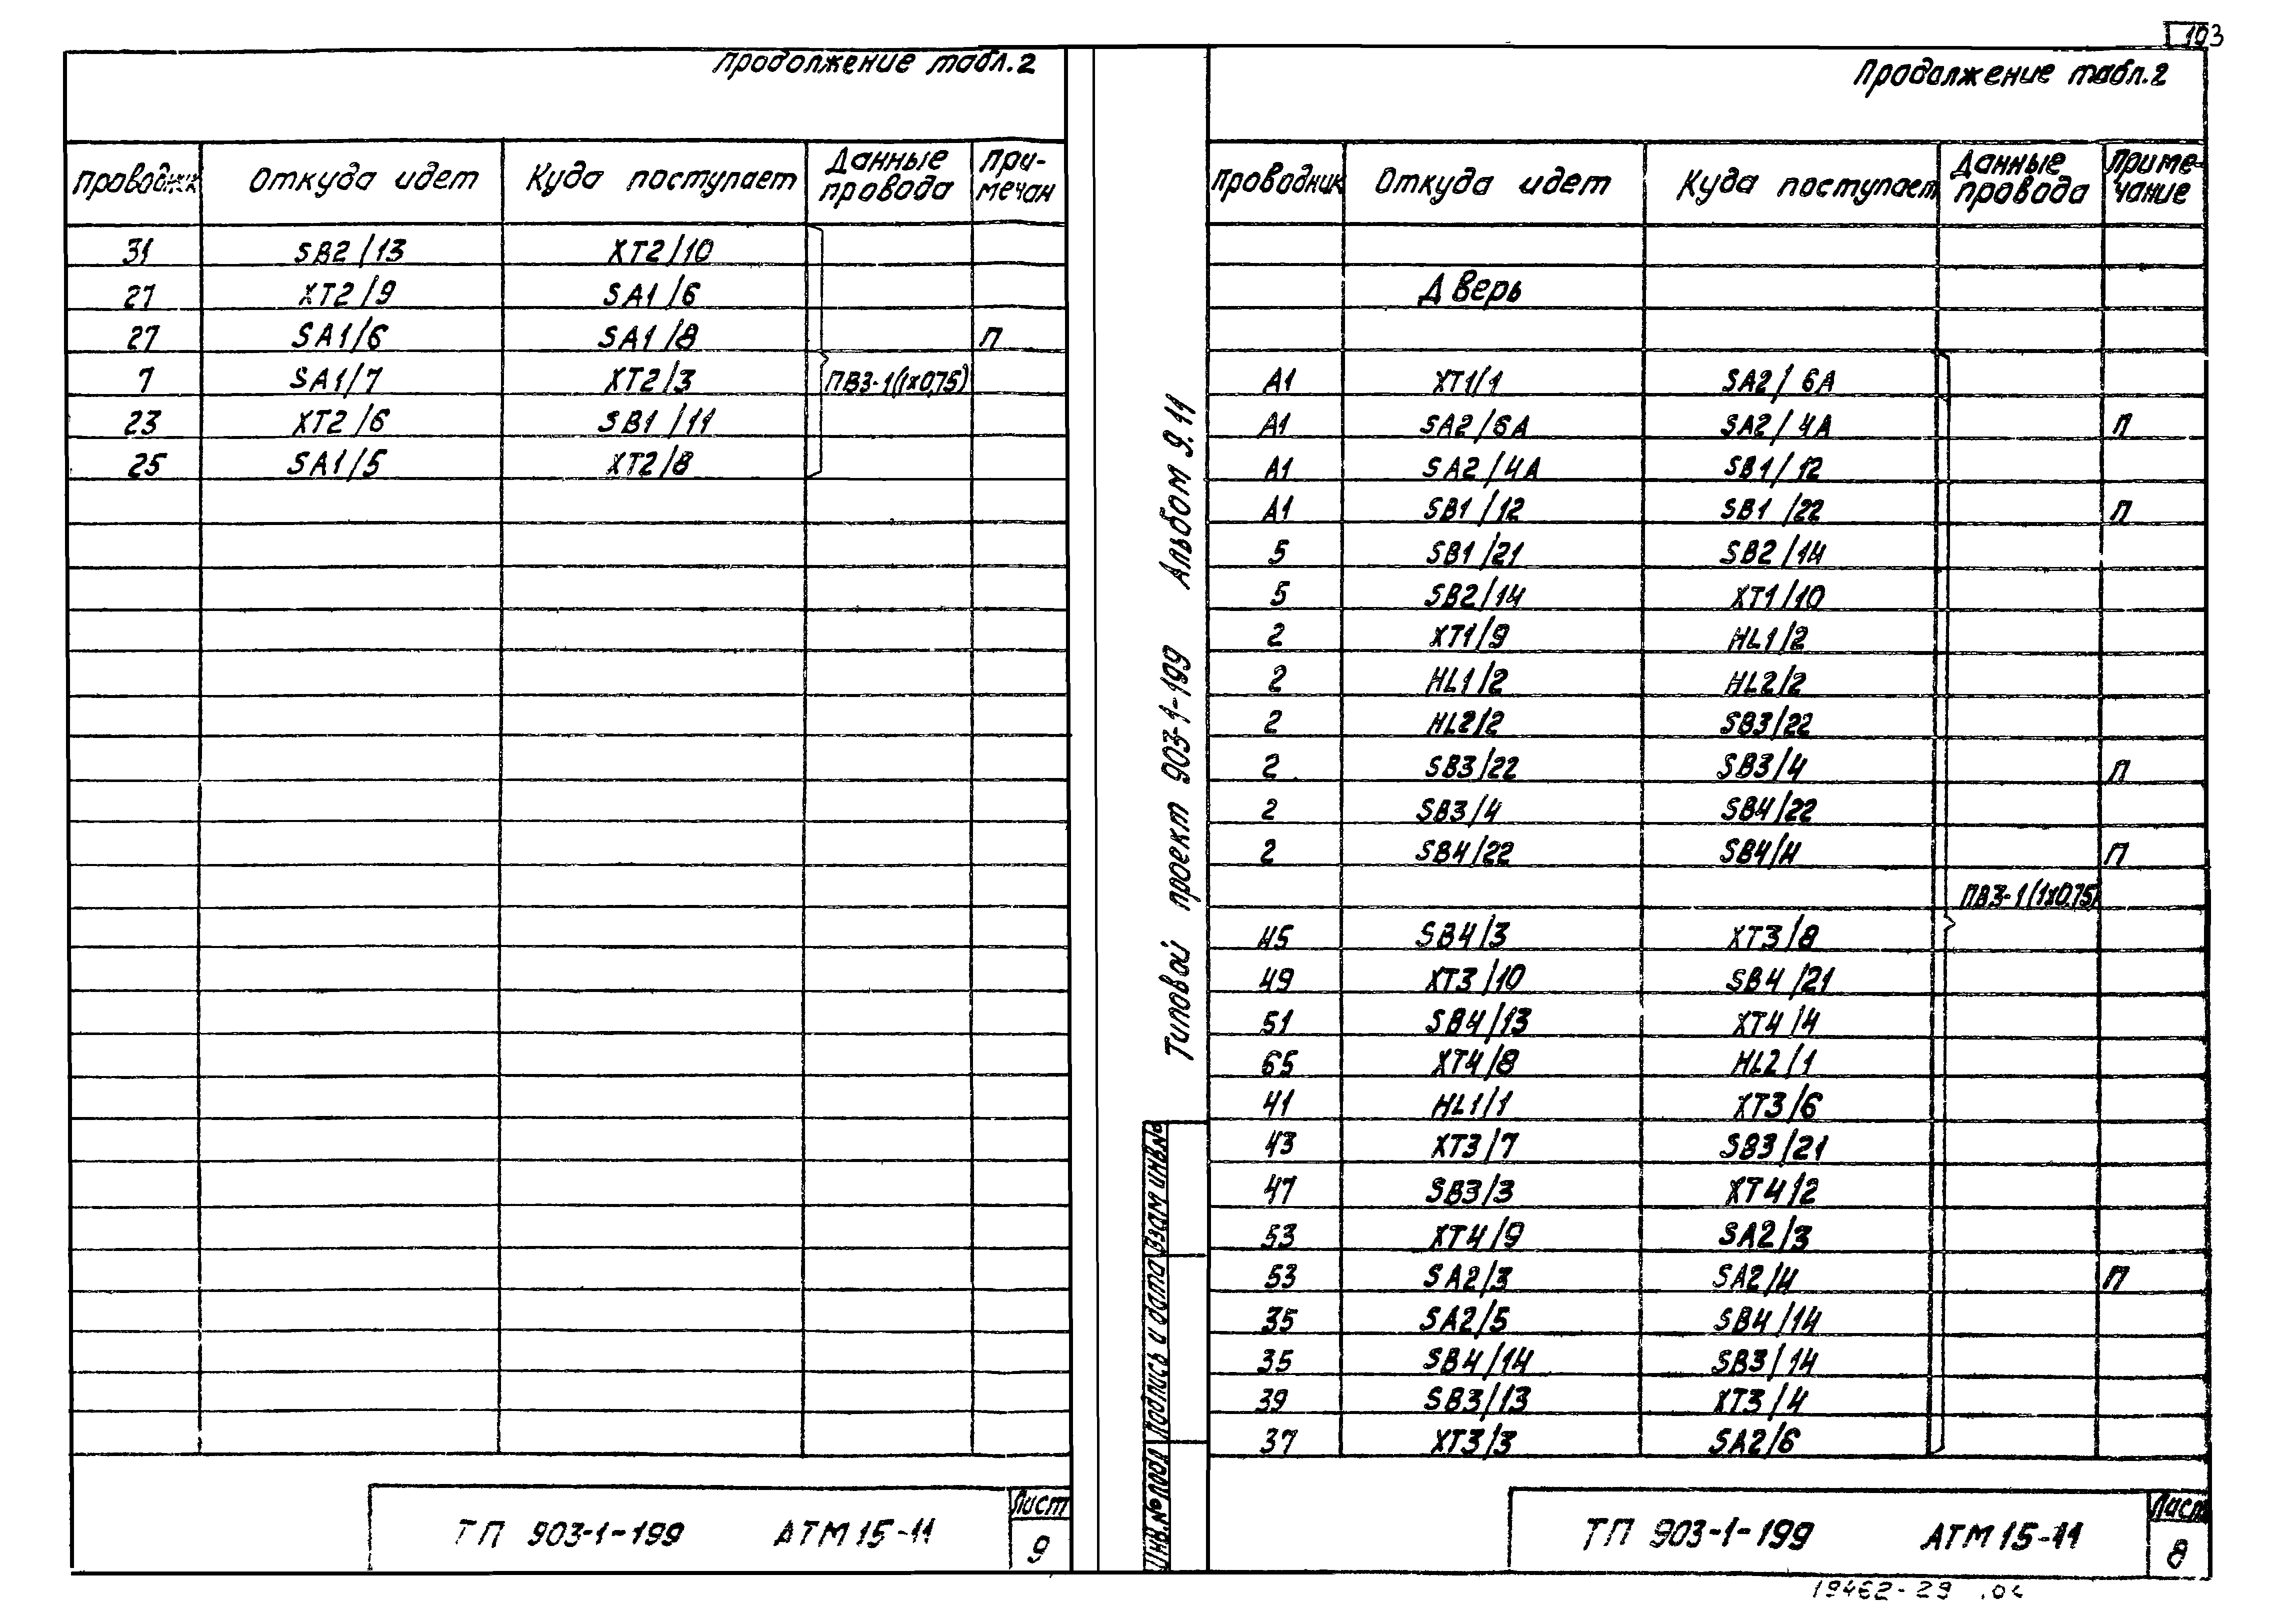 103
Продолжение табл.2
Проводник Откуда идет Куда поступает Данные провода При-мечан
31 SB2/13 XT2/10
27 XT2/9 SA1/6
27 SA1/6 SA1/8 П
7 SA1/7 XT2/3 ПВ3-1(1х0,75)
23 XT2/6 SB1/11
25 SA1/5 XT2/8
ТП 903-1-199 АТМ15-11
Лист
9
Типовой проект 903-1-199 Альбом 9.11
Инв.№подл Подпись и дата Взам инв.№
Продолжение табл.2
Проводник Откуда идет Куда поступает Данные провода Приме-чание
Дверь
А1 XT1/1 SA2/6A
А1 SA2/6A SA2/4A П
А1 SA2/4A SB1/12
А1 SB1/12 SB1/22 П
5 SB1/21 SB2/14
5 SB2/14 XT1/10
2 XT1/9 HL1/2
2 HL1/2 HL2/2
2 HL2/2 SB3/22
2 SB3/22 SB3/4 П
2 SB3/4 SB4/22
2 SB4/22 SB4/4 П
ПВ3-1(1х0,75)
45 SB4/3 XT3/8
49 XT3/10 SB4/21
51 SB4/13 XT4/4
65 XT4/8 HL2/1
41 HL1/1 XT3/6
43 XT3/7 SB3/21
47 SB3/3 XT4/2
53 XT4/9 SA2/3
53 SA2/3 SA2/4 П
35 SA2/5 SB4/14
35 SB4/14 SB3/14
39 SB3/13 XT3/4
37 XT3/3 SA2/6
ТП 903-1-199 АТМ15-11
Лист
8
19462-29